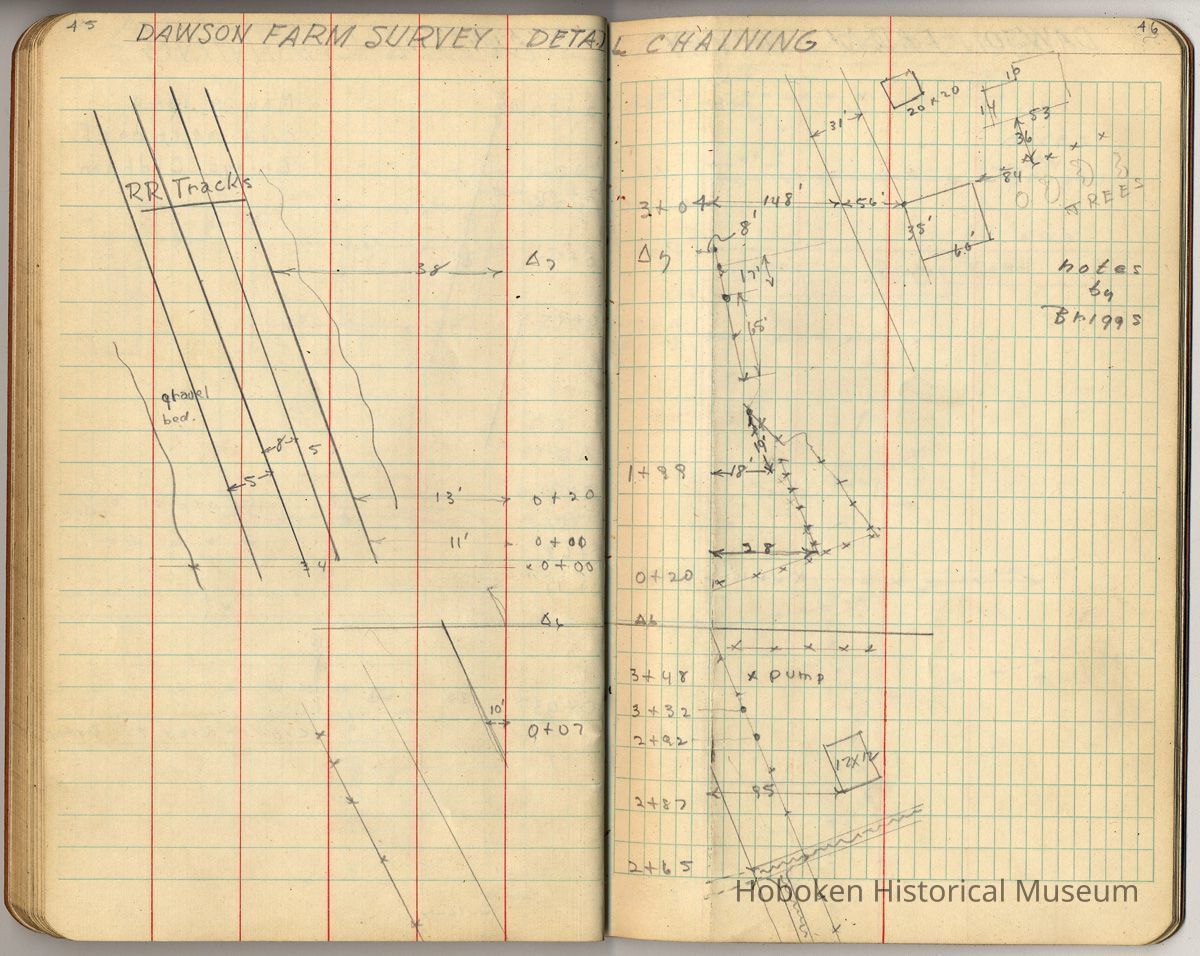 45
DAWSON FARM SURVEY DETAIL CHAINING
46
RR Tracks
38
Δ7
gravel
bed.
8
5
5
13'
0+20
11'
0+00
x 0+00
4
Δ6
10'
0+07
20 x 20
16
14
53
36
84
TREES
31'
3+04
148'
56'
35'
66'
8'
Δ7
17'
65'
notes
by
Briggs
19'
1+88
18'
28
0+20
Δ6
3+48
x pump
3+32
2+92
12x12
2+87
95'
2+65
Hoboken Historical Museum